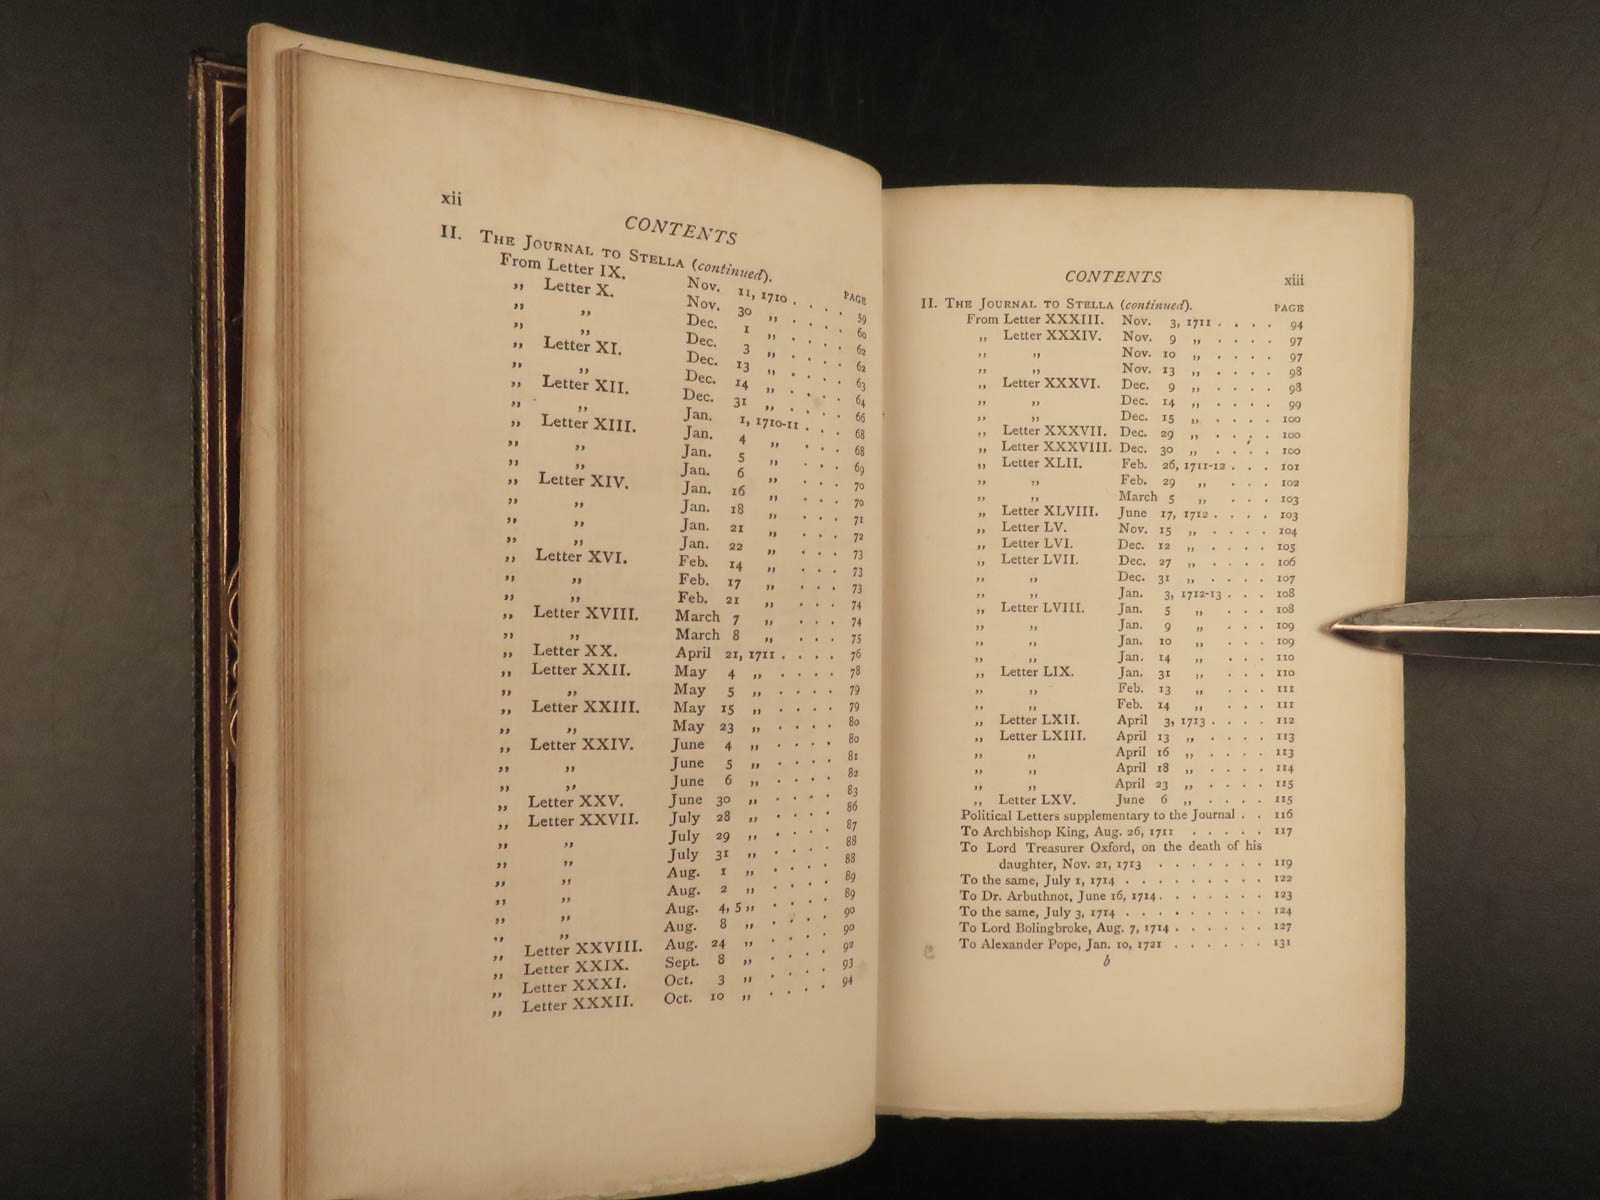 xii
CONTENTS
II. THE JOURNAL TO STELLA (continued).
PAGE
From Letter IX. Nov. 11, 1710 . . . 59
,, Letter X. Nov. 30 ,, . . . . 60
,, ,, Dec. 1 ,, . . . . 62
,, ,, Dec. 3 ,, . . . . 62
,, Letter XI. Dec. 13 ,, . . . . 63
,, ,, Dec. 14 ,, . . . . 64
,, Letter XII. Dec. 31 ,, . . . . 66
,, ,, Jan. 1, 1710-11 . . . 68
,, Letter XIII. Jan. 4 ,, . . . 68
,, ,, Jan. 5 ,, . . . 69
,, ,, Jan. 6 ,, . . . 70
,, Letter XIV. Jan. 16 ,, . . . 70
,, ,, Jan. 18 ,, . . . 71
,, ,, Jan. 21 ,, . . . 72
,, ,, Jan. 22 ,, . . . 73
,, Letter XVI. Feb. 14 ,, . . . 73
,, ,, Feb. 17 ,, . . . 73
,, ,, Feb. 21 ,, . . . 74
,, Letter XVIII. March 7 ,, . . . 74
,, ,, March 8 ,, . . . 75
,, Letter XX. April 21, 1711 . . . . 76
,, Letter XXII. May 4 ,, . . . . 78
,, ,, May 5 ,, . . . . 79
,, Letter XXIII. May 15 ,, . . . . 79
,, ,, May 23 ,, . . . . 80
,, Letter XXIV. June 4 ,, . . . . 80
,, ,, June 5 ,, . . . . 81
,, ,, June 6 ,, . . . . 82
,, Letter XXV. June 30 ,, . . . . 83
,, Letter XXVII. July 28 ,, . . . . 86
,, ,, July 29 ,, . . . . 87
,, ,, July 31 ,, . . . . 88
,, ,, Aug. 1 ,, . . . . 88
,, ,, Aug. 2 ,, . . . . 89
,, ,, Aug. 4, 5 ,, . . . . 89
,, ,, Aug. 8 ,, . . . . 90
,, Letter XXVIII. Aug. 24 ,, . . . . 90
,, Letter XXIX. Sept. 8 ,, . . . . 92
,, Letter XXXI. Oct. 3 ,, . . . . 93
,, Letter XXXII. Oct. 10 ,, . . . . 94
CONTENTS xiii
II. THE JOURNAL TO STELLA (continued). PAGE
From Letter XXXIII. Nov. 3, 1711 . . . . 94
,, Letter XXXIV. Nov. 9 ,, . . . . 97
,, ,, Nov. 10 ,, . . . . 97
,, ,, Nov. 13 ,, . . . . 98
,, Letter XXXVI. Dec. 9 ,, . . . . 98
,, ,, Dec. 14 ,, . . . . 99
,, ,, Dec. 15 ,, . . . . 100
,, Letter XXXVII. Dec. 29 ,, . . . . 100
,, Letter XXXVIII. Dec. 30 ,, . . . . 100
,, Letter XLII. Feb. 26, 1711-12 . . . 101
,, ,, Feb. 29 ,, . . . 102
,, ,, March 5 ,, . . . 103
,, Letter XLVIII. June 17, 1712 . . . . 103
,, Letter LV. Nov. 15 ,, . . . . 104
,, Letter LVI. Dec. 12 ,, . . . . 105
,, Letter LVII. Dec. 27 ,, . . . . 106
,, ,, Dec. 31 ,, . . . . 107
,, ,, Jan. 3, 1712-13 . . . 108
,, Letter LVIII. Jan. 5 ,, . . . 108
,, ,, Jan. 9 ,, . . . 109
,, ,, Jan. 10 ,, . . . 109
,, ,, Jan. 14 ,, . . . 110
,, Letter LIX. Jan. 31 ,, . . . 110
,, ,, Feb. 13 ,, . . . 111
,, ,, Feb. 14 ,, . . . 111
,, Letter LXII. April 3, 1713 . . . . 112
,, Letter LXIII. April 13 ,, . . . . 113
,, ,, April 16 ,, . . . . 113
,, ,, April 18 ,, . . . . 114
,, ,, April 23 ,, . . . . 115
,, Letter LXV. June 6 ,, . . . . 115
Political Letters supplementary to the Journal . . 116
To Archbishop King, Aug. 26, 1711 . . . . . 117
To Lord Treasurer Oxford, on the death of his
daughter, Nov. 21, 1713 . . . . . . . 119
To the same, July 1, 1714 . . . . . . . . . 122
To Dr. Arbuthnot, June 16, 1714 . . . . . . . 123
To the same, July 3, 1714 . . . . . . . . . 124
To Lord Bolingbroke, Aug. 7, 1714 . . . . . . 127
To Alexander Pope, Jan. 10, 1721 . . . . . . 131
b